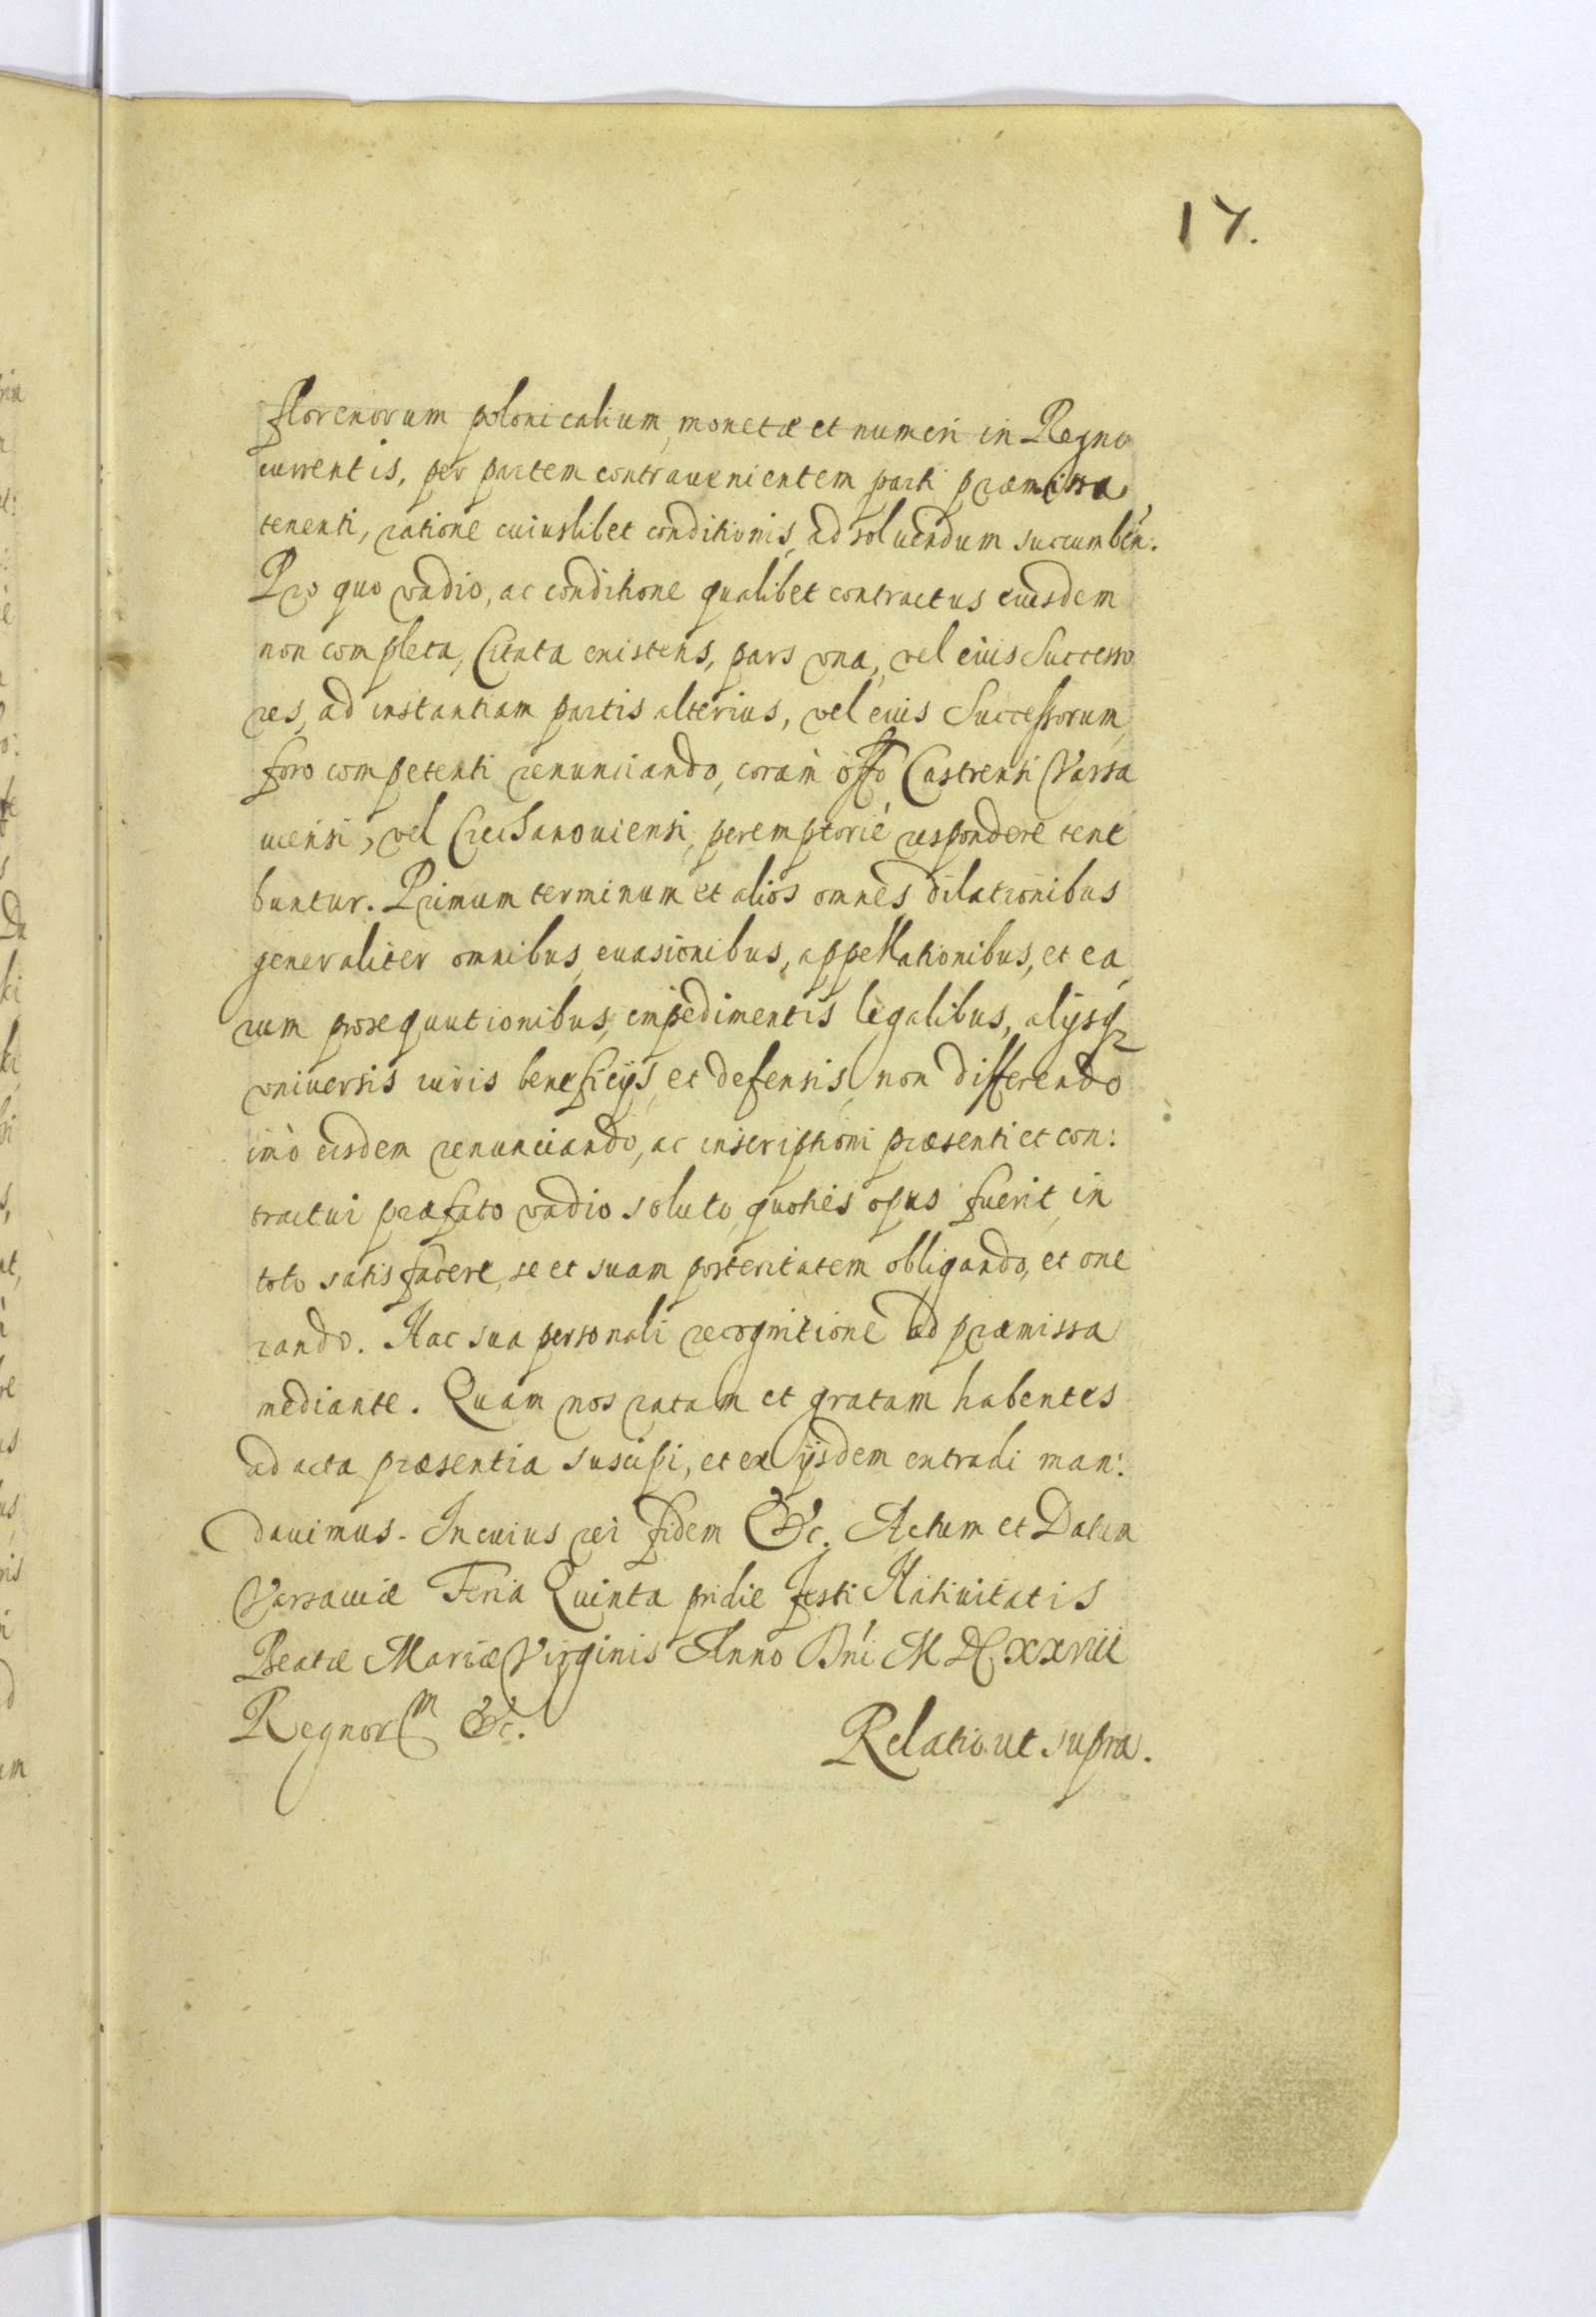 17.
florenorum polonicalium, monetæ et numeri in Regno
currentis, per partem contrauenientem parti præmissa
tenenti, ratione cuiuslibet conditionis, ad soluendum succumben:
Pro quo vadio, ac conditione qualibet contractus eiusdem
non completa, Citata existens, pars vna, vel eius Successo
res, ad instantiam partis alterius, vel eius Successorum,
foro competenti renunciando, coram offo Castrensi Varsa
uiensi, vel Ciechanouiensi, peremptorie respondere tene
buntur. Primum terminum et alios omnes dilationibus
generaliter omnibus, euasionibus, appellationibus, et ea
rum prosequutionibus, impedimentis legalibus, alijsq
vniversis iuris beneficijs, et defensis, non differendo
imò eisdem renunciando, ac inscriptioni præsenti et con:
tractui præfato vadio soluto, quoties opus fuerit, in
toto satisfacere, se et suam posteritatem obligando, et one
rando. Hac sua personali recognitione ad præmissa
mediante. Quam nos ratam et gratam habentes
ad acta præsentia suscipi, et ex ijsdem extradi man:
dauimus. In cuius rei fidem &c. Actum et Datum
Varsauiæ Feria Quinta pridie festi Natiuitatis
Beatæ Mariæ Virginis Anno Dni M DC XXVIII
Regnorm &c.
Relatio ut supra.